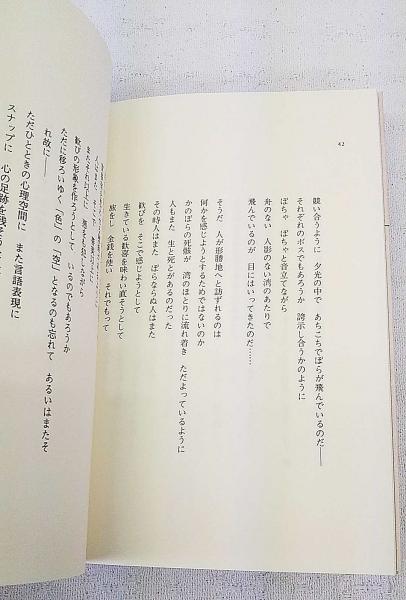 42
競い合うように 夕光の中で あちこちでぼらが飛んでいるのだ――
それぞれのボスでもあろうか 誇示し合うかのように
ぼちゃ ぼちゃと音立てながら
舟のない 人影のない湾のあたりで
飛んでいるのが 目にはいってきたのだ……
そうだ 人が形勝地へと訪ずれるのは
何かを感じようとするためではないのか
かのぼらの死骸が 湾のほとりに流れ着き ただよっているように
人もまた 生と死とがあるのだった
その時人はまた ぼらならぬ人はまた
歓びを そこで感じようとして
生きている歓喜を味わい直そうとして
旅をし 金銭を使い それでもって
歓びの形象を作ろうとして いるのでもあろうか
ただに移ろいゆく「色」の「空」となるのも忘れて あるいはまたそ
れ故に――
ただひとときの心理空間に また言語表現に
スナップに 心の足跡を残そうと